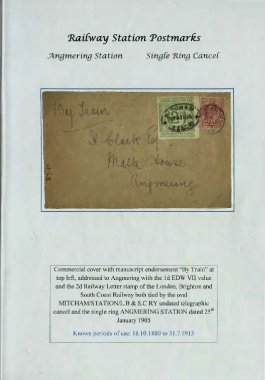 Railway Station Postmarks
Angmering Station Single Ring Cancel
By Train
H. Clark Esq
Malta House
Angmering
Commercial cover with manuscript endorsement "By Train" at
top left, addressed to Angmering with the 1d EDW VII value
and the 2d Railway Letter stamp of the London, Brighton and
South Coast Railway both tied by the oval
MITCHAM/STATION/L.B & S.C RY undated telegraphic
cancel and the single ring ANGMERING STATION dated 25th
January 1905
Known periods of use: 18.10.1880 to 31.7.1913